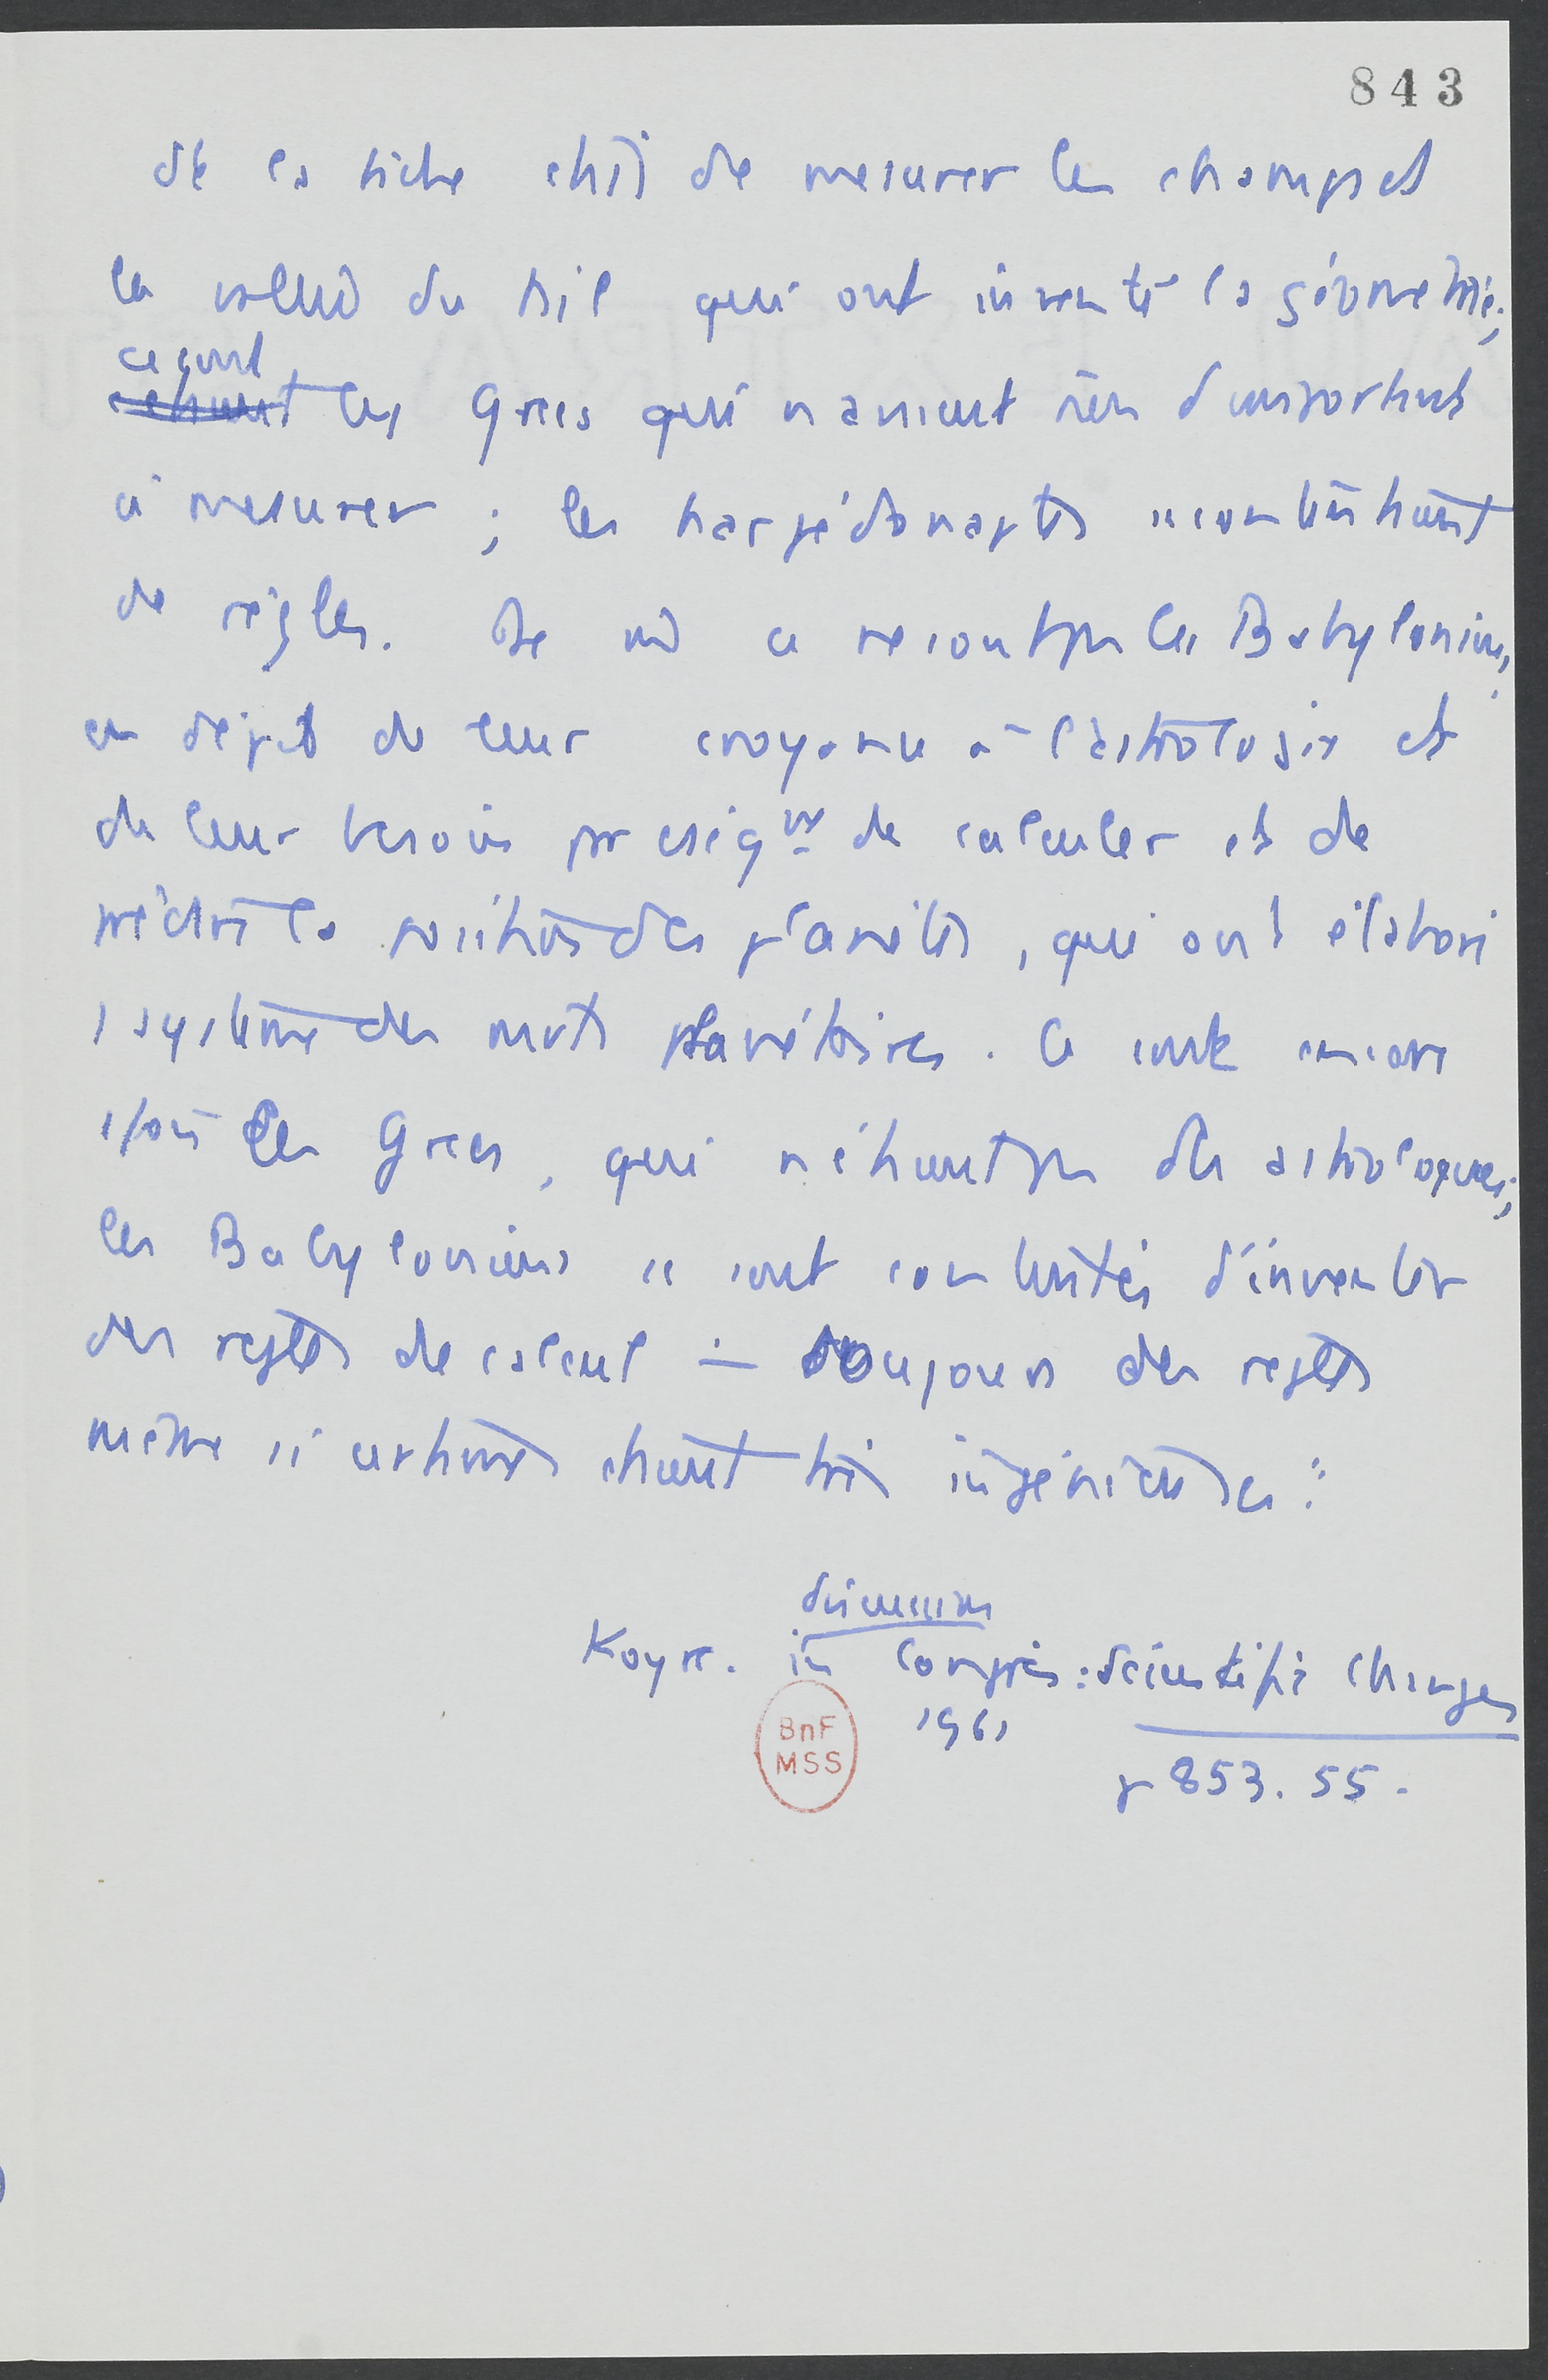 843
de la tâche était de mesurer les champs et
la vallée du Nil qui ont inventé la géométrie;
ce sont
les Grecs qui n'avaient rien d'important
à mesurer ; les harpédonaptes se contentaient
de règles. De m̂ ce ne sont pas les Babyloniens,
en dépit de leur croyance à l'astrologie et
de leur besoin de calculer et de
prédire la position des planètes, qui ont élaboré
1 système des mvts planétaires. Ce sont encore
1 fois les Grecs, qui n'étaient pas des astrologues;
les Babyloniens se sont contentés d'inventer
des règles de calcul — toujours des règles
même si certaines étaient très ingénieuses."
discussion
Koyré. in Congrès : Scientific Changes
1961
p 853. 55.
BnF
MSS